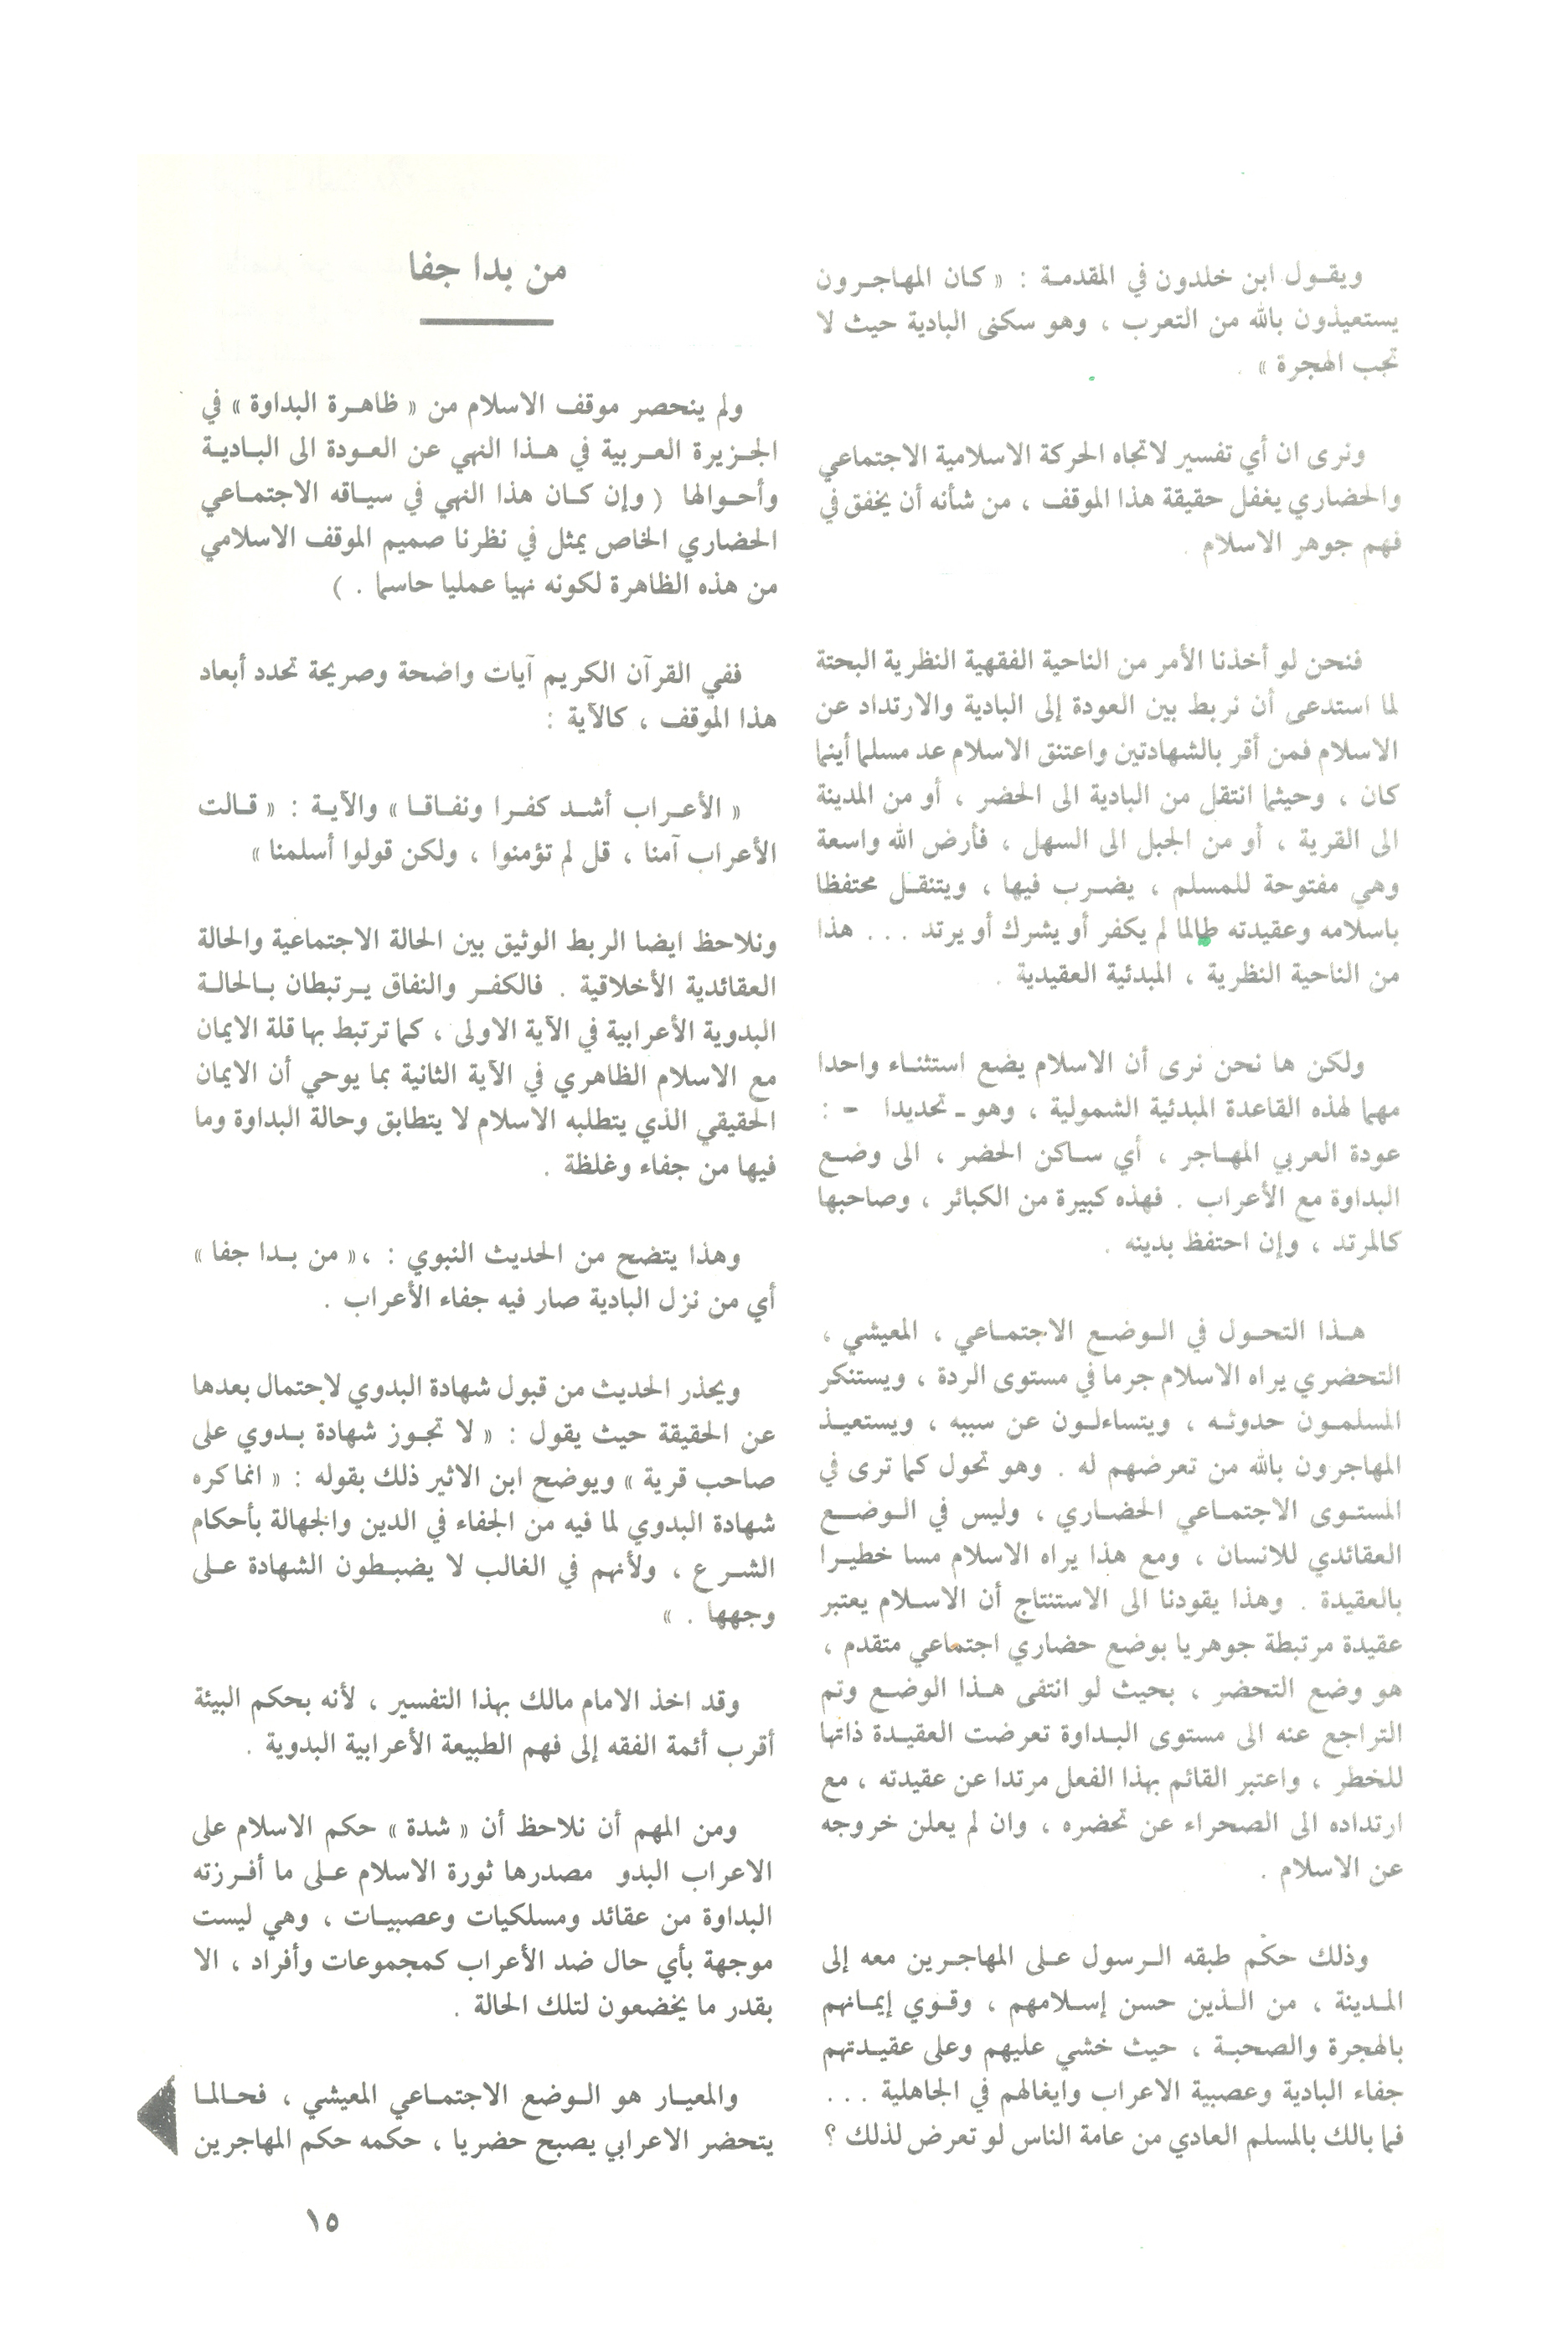 ويقول ابن خلدون في المقدمة : « كان المهاجرون
يستعيذون بالله من التعرب ، وهو سكنى البادية حيث لا
تجب الهجرة » .
ونرى ان أي تفسير لاتجاه الحركة الاسلامية الاجتماعي
والحضاري يغفل حقيقة هذا الموقف ، من شأنه أن يخفق في
فهم جوهر الاسلام .
فنحن لو أخذنا الأمر من الناحية الفقهية النظرية البحتة
لما استدعى أن نربط بين العودة إلى البادية والارتداد عن
الاسلام فمن أقر بالشهادتين واعتنق الاسلام عد مسلما أينما
كان ، وحيثما انتقل من البادية الى الحضر ، أو من المدينة
الى القرية ، أو من الجبل الى السهل ، فأرض الله واسعة
وهي مفتوحة للمسلم ، يضرب فيها ، ويتنقل محتفظا
باسلامه وعقيدته طالما لم يكفر أو يشرك أو يرتد ... هذا
من الناحية النظرية ، المبدئية العقيدية .
ولكن ها نحن نرى أن الاسلام يضع استثناء واحدا
مهما لهذه القاعدة المبدئية الشمولية ، وهو ـ تحديدا - :
عودة العربي المهاجر ، أي ساكن الحضر ، الى وضع
البداوة مع الأعراب . فهذه كبيرة من الكبائر ، وصاحبها
كالمرتد ، وإن احتفظ بدينه .
هذا التحول في الوضع الاجتماعي ، المعيشي ،
التحضري يراه الاسلام جرما في مستوى الردة ، ويستنكر
المسلمون حدوثه ، ويتساءلون عن سببه ، ويستعيذ
المهاجرون بالله من تعرضهم له . وهو تحول كما ترى في
المستوى الاجتماعي الحضاري ، وليس في الوضع
العقائدي للانسان ، ومع هذا يراه الاسلام مسا خطيرا
بالعقيدة . وهذا يقودنا الى الاستنتاج أن الاسلام يعتبر
عقيدة مرتبطة جوهريا بوضع حضاري اجتماعي متقدم ،
هو وضع التحضر ، بحيث لو انتفى هذا الوضع وتم
التراجع عنه الى مستوى البداوة تعرضت العقيدة ذاتها
للخطر ، واعتبر القائم بهذا الفعل مرتدا عن عقيدته ، مع
ارتداده الى الصحراء عن تحضره ، وان لم يعلن خروجه
عن الاسلام .
وذلك حكم طبقه الرسول على المهاجرين معه إلى
المدينة ، من الذين حسن إسلامهم ، وقوي إيمانهم
بالهجرة والصحبة ، حيث خشي عليهم وعلى عقيدتهم
جفاء البادية وعصبية الاعراب وايغالهم في الجاهلية ...
فما بالك بالمسلم العادي من عامة الناس لو تعرض لذلك ؟
من بدا جفا
ولم ينحصر موقف الاسلام من « ظاهرة البداوة » في
الجزيرة العربية في هذا النهي عن العودة الى البادية
وأحوالها ( وإن كان هذا النهي في سياقه الاجتماعي
الحضاري الخاص يمثل في نظرنا صميم الموقف الاسلامي
من هذه الظاهرة لكونه نهيا عمليا حاسما . )
ففي القرآن الكريم آيات واضحة وصريحة تحدد أبعاد
هذا الموقف ، كالآية :
« الأعراب أشد كفرا ونفاقا » والآية : « قالت
الأعراب آمنا ، قل لم تؤمنوا ، ولكن قولوا أسلمنا »
ونلاحظ ايضا الربط الوثيق بين الحالة الاجتماعية والحالة
العقائدية الأخلاقية . فالكفر والنفاق يرتبطان بالحالة
البدوية الأعرابية في الآية الاولى ، كما ترتبط بها قلة الايمان
مع الاسلام الظاهري في الآية الثانية بما يوحي أن الايمان
الحقيقي الذي يتطلبه الاسلام لا يتطابق وحالة البداوة وما
فيها من جفاء وغلظة .
وهذا يتضح من الحديث النبوي : ، « من بدا جفا »
أي من نزل البادية صار فيه جفاء الأعراب .
ويحذر الحديث من قبول شهادة البدوي لاحتمال بعدها
عن الحقيقة حيث يقول : « لا تجوز شهادة بدوي على
صاحب قرية » ويوضح ابن الاثير ذلك بقوله : « انما كره
شهادة البدوي لما فيه من الجفاء في الدين والجهالة بأحكام
الشرع ، ولأنهم في الغالب لا يضبطون الشهادة على
وجهها . »
وقد اخذ الامام مالك بهذا التفسير ، لأنه بحكم البيئة
أقرب أئمة الفقه إلى فهم الطبيعة الأعرابية البدوية .
ومن المهم أن نلاحظ أن « شدة » حكم الاسلام على
الاعراب البدو مصدرها ثورة الاسلام على ما أفرزته
البداوة من عقائد ومسلكيات وعصبيات ، وهي ليست
موجهة بأي حال ضد الأعراب كمجموعات وأفراد ، الا
بقدر ما يخضعون لتلك الحالة .
والمعيار هو الوضع الاجتماعي المعيشي ، فحالما
يتحضر الاعرابي يصبح حضريا ، حكمه حكم المهاجرين
١٥